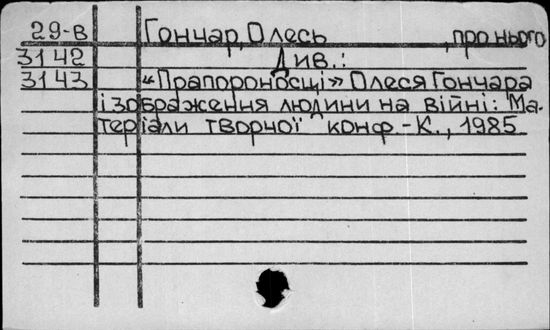 29-в Гончар, Олесь , про нього
3142 Див.:
3143 «Прапороносці» Олеся Гончара
і зображення людини на війні: Ма-
теріали творчої конф.-К., 1985